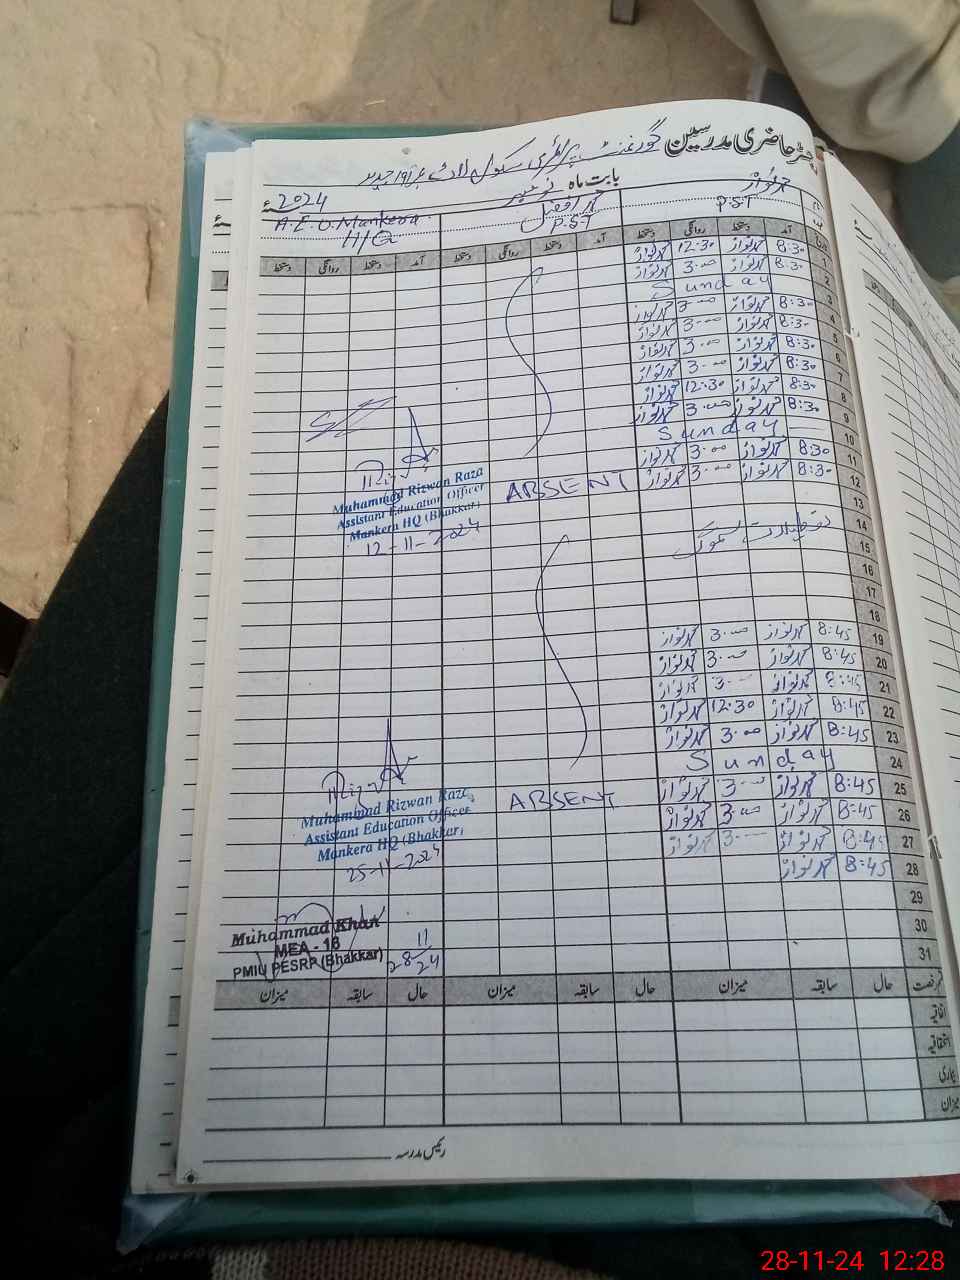 رجسٹر حاضری مدرسین گورنمنٹ پرائمری سکول
بابت ماہ نومبر 2024ء
محمد نواز P.S.T
محمد افضل P.S.T
A.E.O. Mankera H/Q
آمد دستخط روانگی دستخط آمد دستخط روانگی دستخط آمد دستخط روانگی دستخط
1 8:30 محمد نواز 12:30 محمد نواز
2 8:30 محمد نواز 3:00 محمد نواز
3 Sunday
4 8:30 محمد نواز 3:00 محمد نواز
5 8:30 محمد نواز 3:00 محمد نواز
6 8:30 محمد نواز 3:00 محمد نواز
7 8:30 محمد نواز 3:00 محمد نواز
8 8:30 محمد نواز 12:30 محمد نواز
9 8:30 محمد نواز 3:00 محمد نواز
10 Sunday
11 8:30 محمد نواز 3:00 محمد نواز
12 8:30 محمد نواز 3:00 محمد نواز ABSENT
Muhammad Rizwan Raza
Assistant Education Officer
Mankera HQ (Bhakkar)
12-11-2024
13
14
15 سموگ
16
17
18
19 8:45 محمد نواز 3:00 محمد نواز
20 8:45 محمد نواز 3:00 محمد نواز
21 8:45 محمد نواز 3:00 محمد نواز
22 8:45 محمد نواز 12:30 محمد نواز
23 8:45 محمد نواز 3:00 محمد نواز
24 Sunday
25 8:45 محمد نواز 3:00 محمد نواز ABSENT
Muhammad Rizwan Raza
Assistant Education Officer
Mankera HQ (Bhakkar)
25-11-2024
26 8:45 محمد نواز 3:00 محمد نواز
27 8:45 محمد نواز 3:00 محمد نواز
28 8:45 محمد نواز
29
30
31
Muhammad Khan
MEA - 16
PMIU PESRP (Bhakkar)
28/11/24
حال سابقہ میزان حال سابقہ میزان حال سابقہ میزان
اتفاقیہ
استحقاقیہ
بیماری
میزان
رئیس مدرسہ
28-11-24 12:28